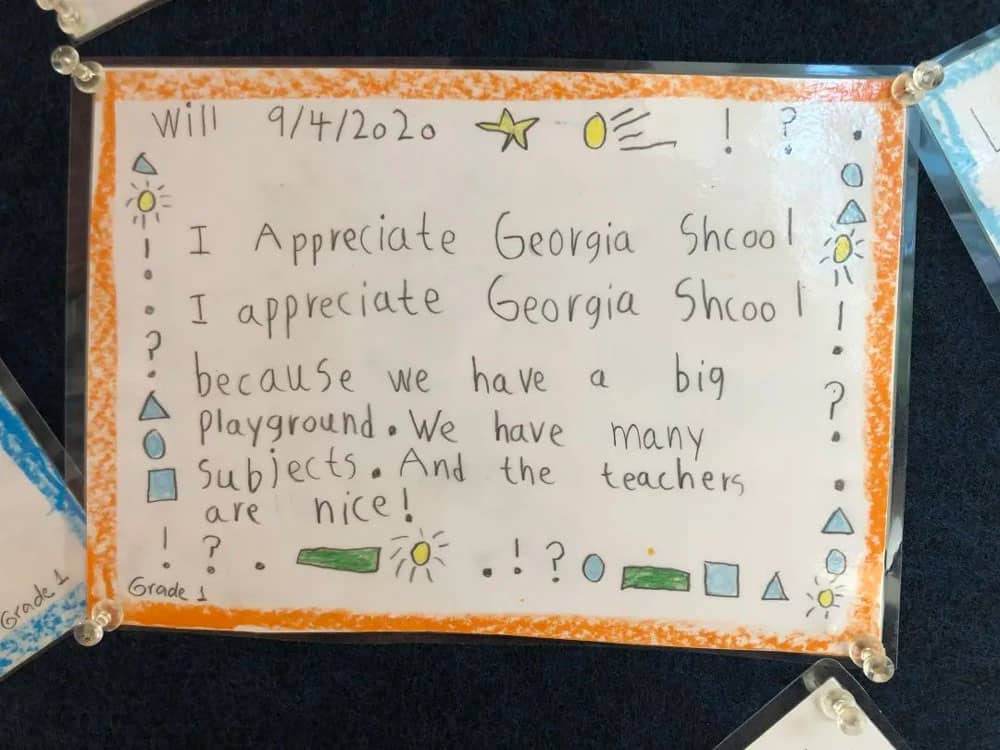 Will 9/4/2020 ! ?
I Appreciate Georgia Shcool
I appreciate Georgia Shcool
because we have a big
playground. We have many
subjects. And the teachers
are nice!
! ? . . ! ?
Grade 1
Grade 1